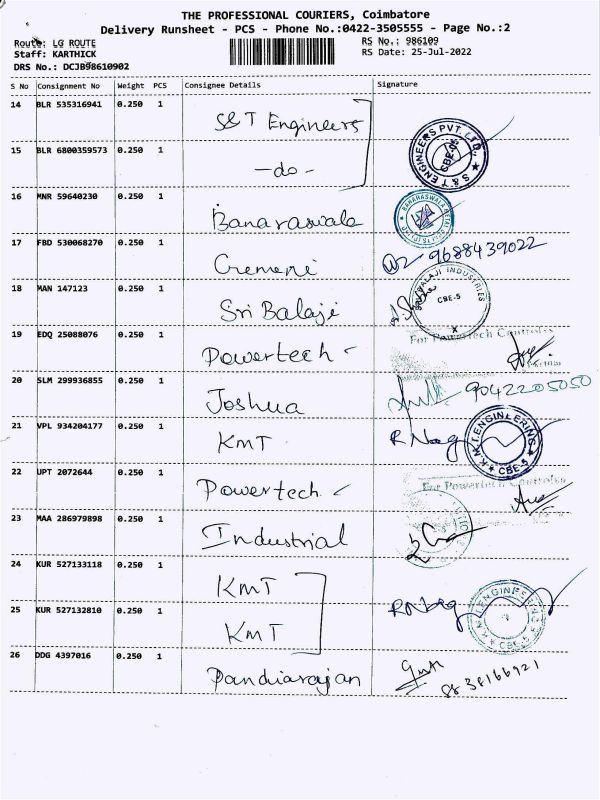 THE PROFESSIONAL COURIERS, Coimbatore
Delivery Runsheet - PCS - Phone No.:0422-3505555 - Page No.:2
Route: LG ROUTE
Staff: KARTHICK
DRS No.: DCJB98610902
RS No.: 986109
RS Date: 25-Jul-2022
S No Consignment No Weight PCS Consignee Details Signature
14 BLR 535316941 0.250 1 S&T Engineers
15 BLR 6800359573 0.250 1 -do-
S & T ENGINEERS PVT. LTD.,
CBE-05
16 MNR 59640230 0.250 1 Banaraswala
17 FBD 530068270 0.250 1 9688439022
18 MAN 147123 0.250 1 Sri Balaji
BALAJI INDUSTRIES
CBE-5
19 EDQ 25088076 0.250 1 Powertech
For Powertech Controls
20 SLM 299936855 0.250 1 Joshua 9042205050
21 VPL 934204177 0.250 1 KMT R Nag
K.M.T. ENGINEERING
CBE-5
22 UPT 2072644 0.250 1 Powertech
For Powertech Controls
23 MAA 286979898 0.250 1 Industrial
24 KUR 527133118 0.250 1 KMT
25 KUR 527132810 0.250 1 KMT
K.M.T. ENGINEERING
CBE-5
26 DDG 4397016 0.250 1 Pandiarajan 8838166921